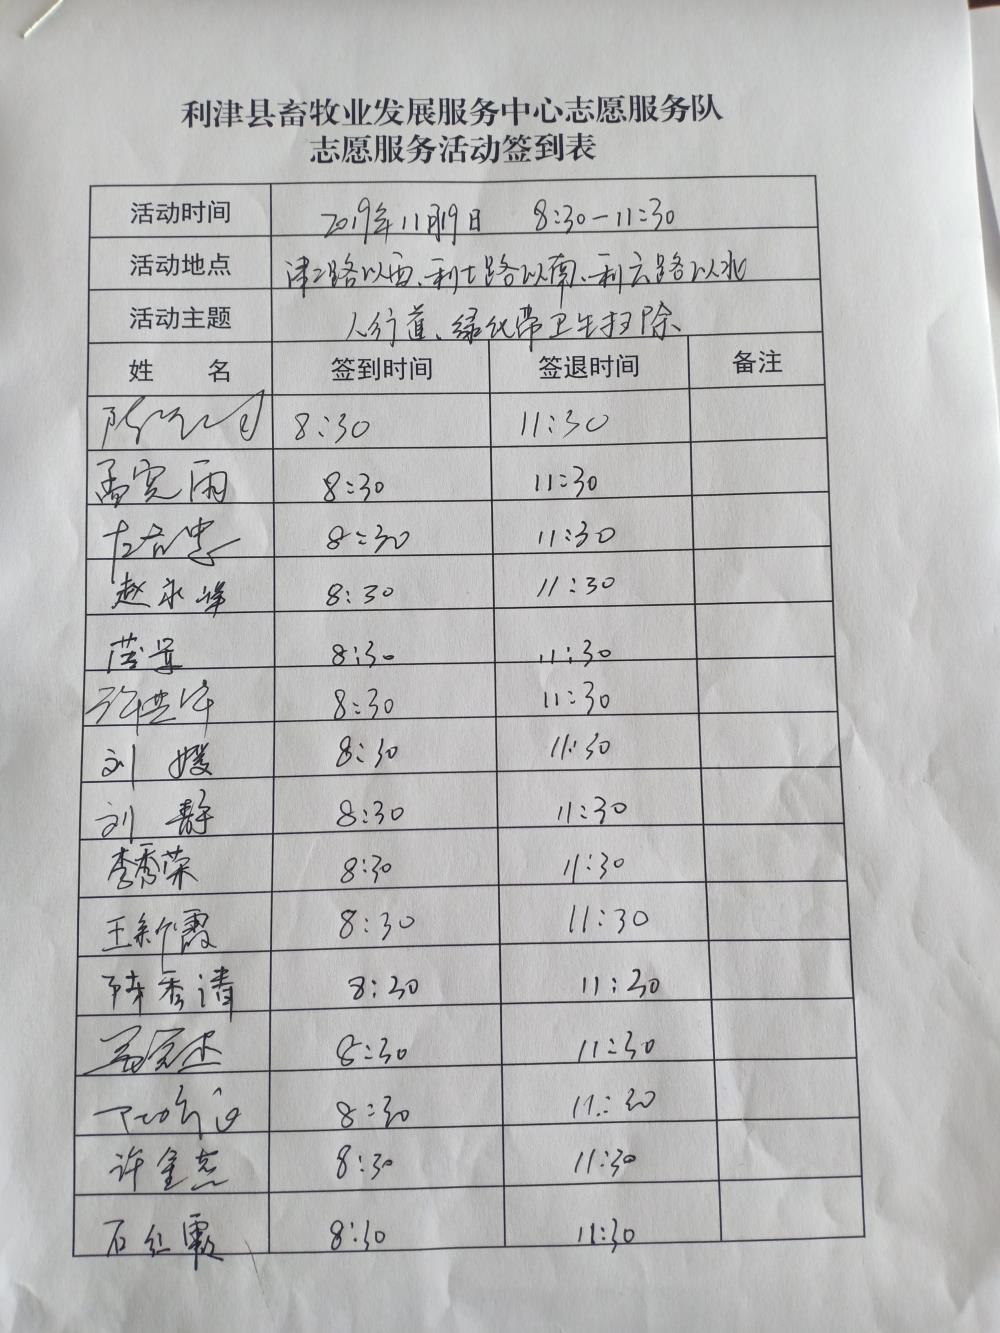 利津县畜牧业发展服务中心志愿服务队
志愿服务活动签到表
活动时间 2019年11月19日 8:30-11:30
活动地点 津二路以西、利七路以南、利六路以北
活动主题 人行道、绿化带卫生扫除
姓 名 签到时间 签退时间 备注
8:30 11:30
孟宪雨 8:30 11:30
8:30 11:30
赵永峰 8:30 11:30
8:30 11:30
8:30 11:30
刘媛 8:30 11:30
刘静 8:30 11:30
李秀荣 8:30 11:30
王新霞 8:30 11:30
陈秀清 8:30 11:30
8:30 11:30
8:30 11:30
许奎志 8:30 11:30
石红霞 8:30 11:30